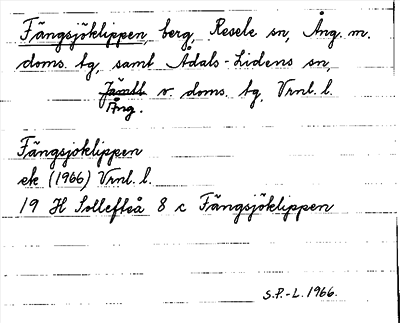 Fängsjöklippen, berg, Resele sn, Ång. m.
doms. tg, samt Ådals-Lidens sn,
Jämtl. v. doms. tg, Vrnl. l.
Ång.
Fängsjöklippen
ek (1966) Vrnl. l.
19 H Sollefteå 8 c Fängsjöklippen
S.P.-L. 1966.